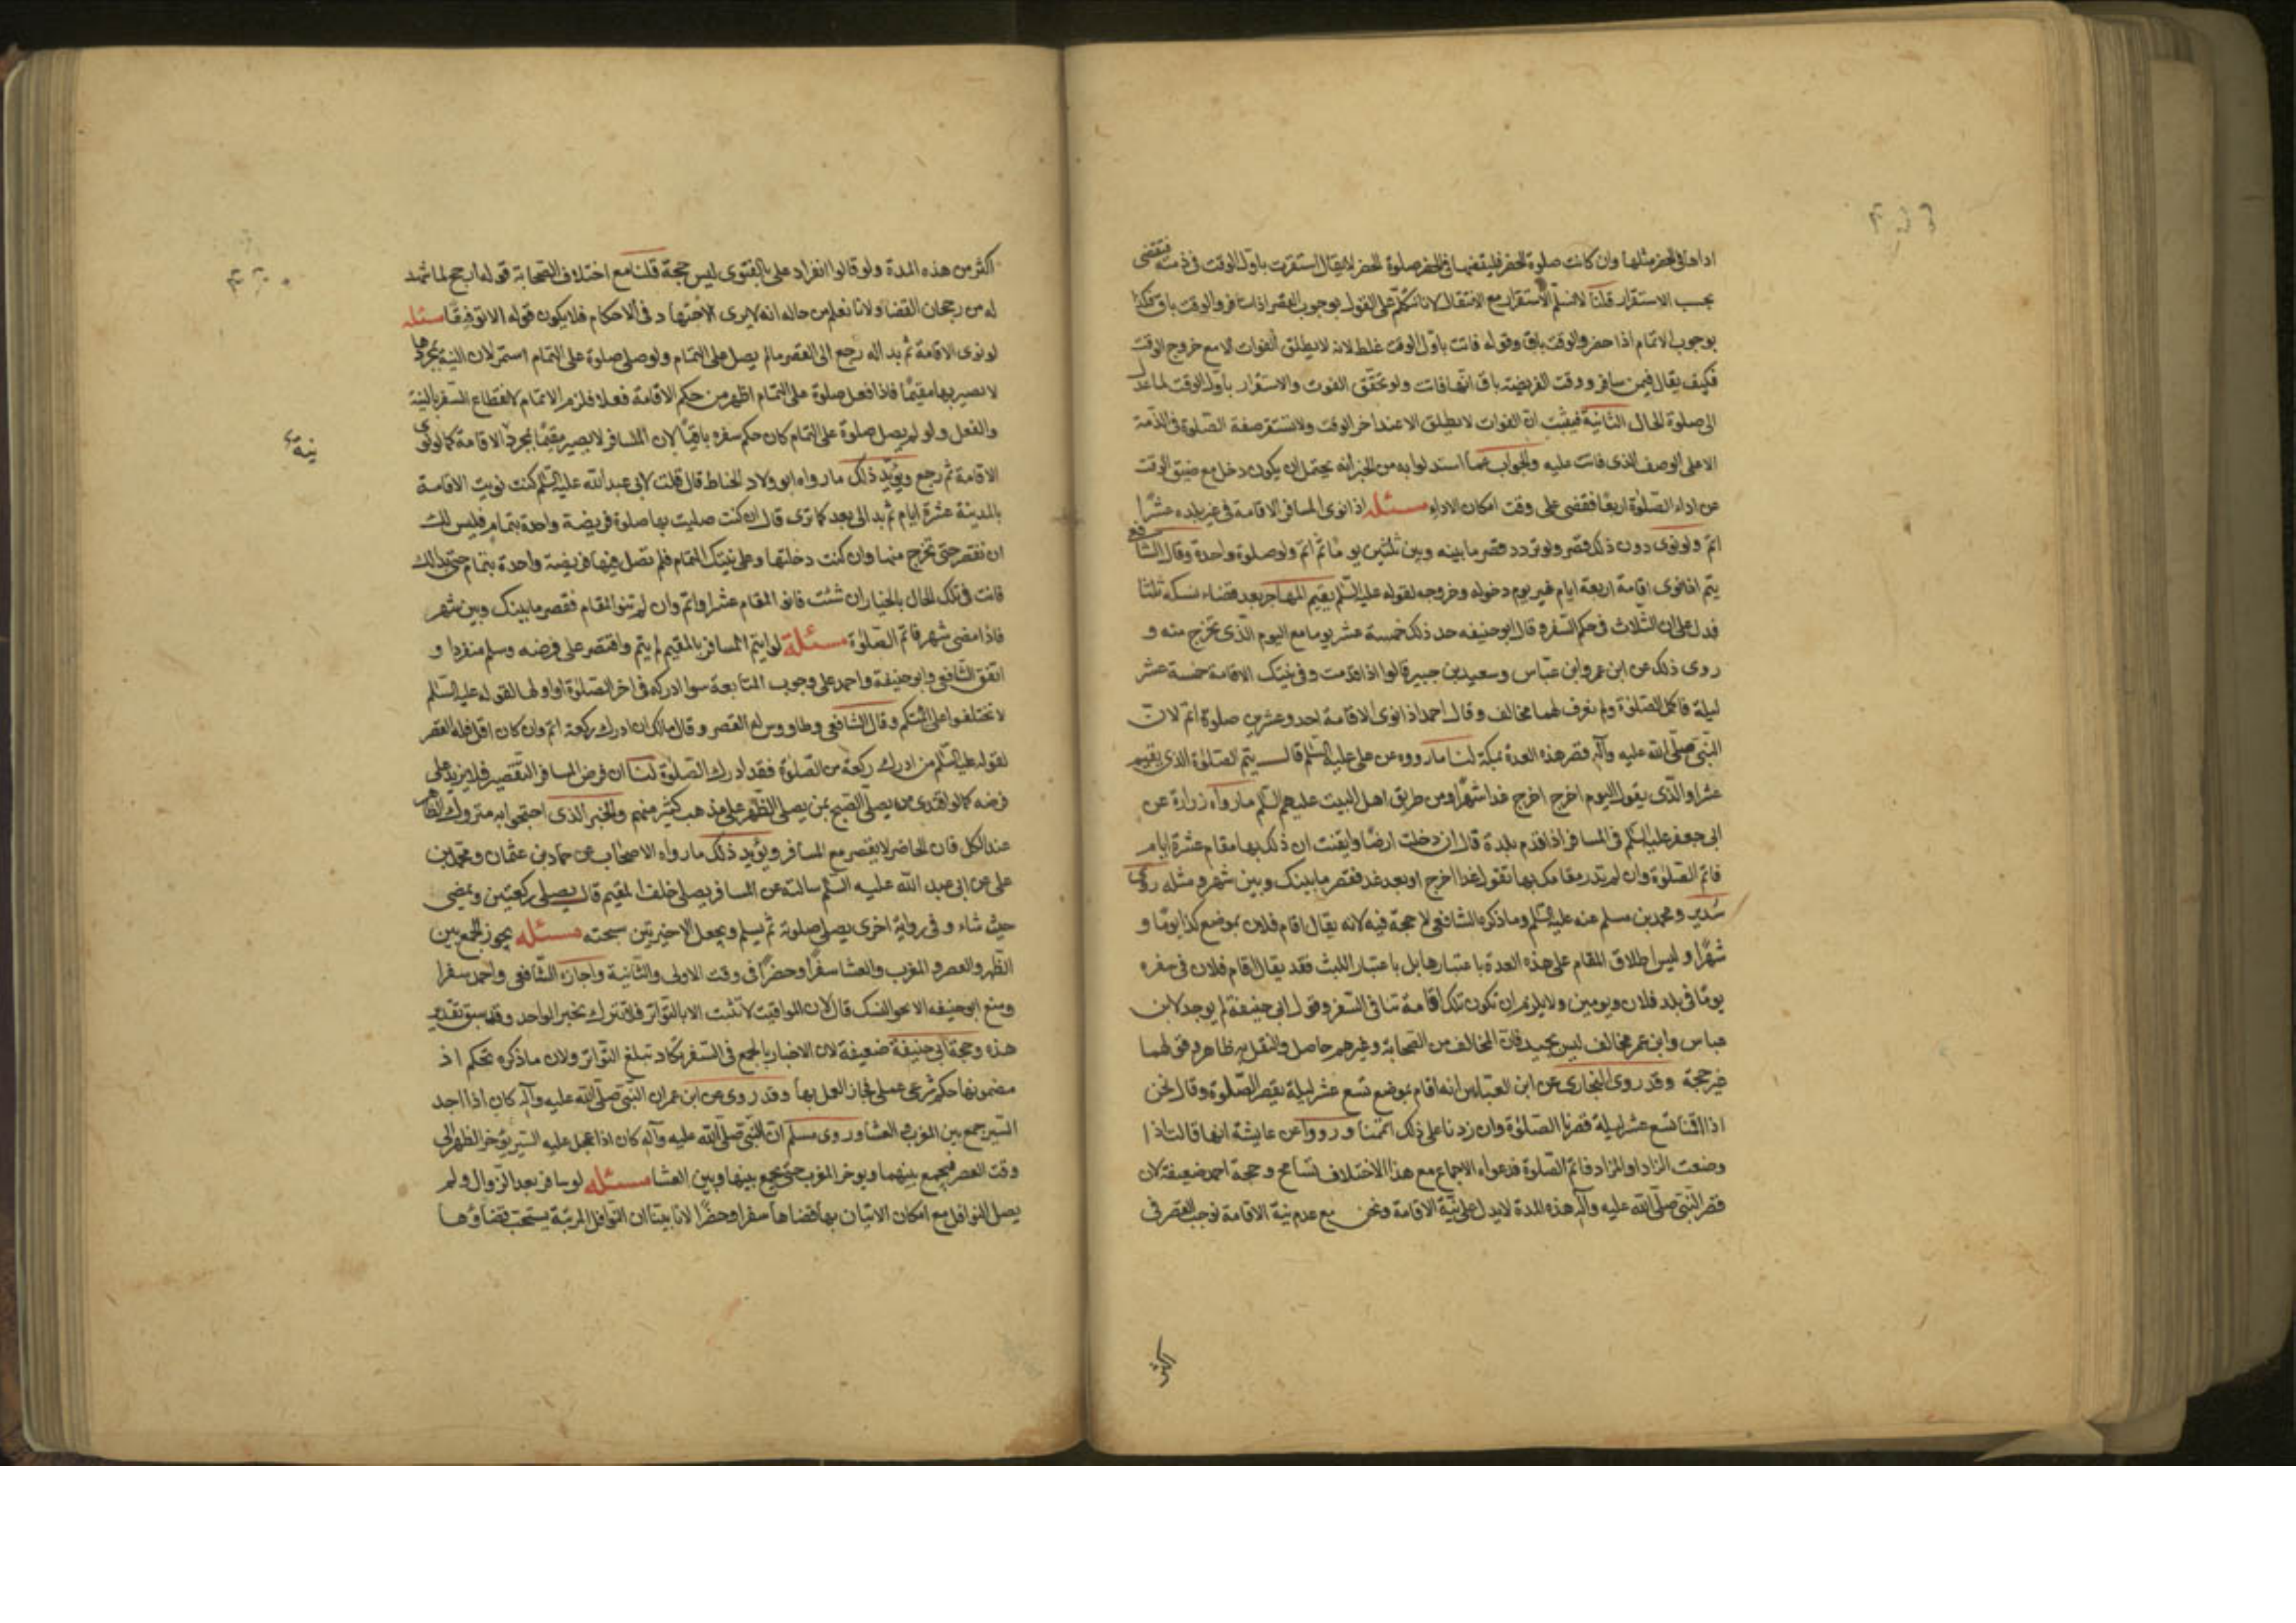 اداها فى الحضر مثلها وان كانت صلوة الحضر فليقضها فى الحضر صلوة الحضر لا يقال استقرت باول الوقت فى ذمته فتقضى
بحسب الاستقرار قلنا لا نسلم الاستقرار مع الانتقال لانا نتكلم على القول بوجوب القصر اذا سافر والوقت باق فكذا
بوجوب الاتمام اذا حضر والوقت باق وقوله فاتت باول الوقت غلط لانه لا يطلق الفوات الا مع خروج الوقت
فكيف يقال فيمن سافر ووقت الفريضة باق انها فاتت ولو تحقق الفوت والاستقرار باول الوقت لما عدل
الى صلوة الحال الثانية فيثبت ان الفوات لا يطلق الا عند اخر الوقت ولا تستقر صفة الصلوة فى الذمة
الا على الوصف الذى فاتت عليه والجواب عما استدلوا به من الخبر انه يحتمل ان يكون دخل مع ضيق الوقت
عن اداء الصلوة اربعا فقضى على وقت امكان الاداء مسئله اذا نوى المسافر الاقامة فى غير بلده عشرا
اتم ولو نوى دون ذلك قصر ولو تردد قصر ما بينه وبين ثلثين يوما ثم اتم ولو صلوة واحدة وقال الشافعى
يتم اذا نوى اقامة اربعة ايام غير يوم دخوله وخروجه لقوله عليه السلم يقيم المهاجر بعد قضاء نسكه ثلثا
فدل على ان الثلاث فى حكم السفر وقال ابو حنيفه حد ذلك خمسة عشر يوما مع اليوم الذى تخرج منه و
روى ذلك عن ابن عمر وابن عباس وسعيد بن جبير قالوا اذا قدمت وفى نيتك الاقامة خمسة عشر
ليلة فاكمل الصلوة ولم نعرف لهما مخالف وقال احمد اذا نوى الاقامة احد وعشرين صلوة اتم لان
النبى صلى الله عليه وآله قصر هذه العدة بمكة لنا ما رووه عن على عليه السلم قال يتم الصلوة الذى يقيم
عشرا والذى يقول اليوم اخرج اخرج غدا شهرا ومن طريق اهل البيت عليهم السلم ما رواه زرارة عن
ابى جعفر عليه السلم فى المسافر اذا قدم بلدة قال ان دخلت ارضا وايقنت ان ذلك بها مقام عشرة ايام
فاتم الصلوة وان لم تدر مقامك بها تقول غدا اخرج او بعد غد فقصر ما بينك وبين شهر ومثله روى
سدير ومحمد بن مسلم عنه عليه السلم وما ذكره الشافعى لا حجة فيه لانه يقال اقام فلان بموضع كذا يوما و
شهرا وليس اطلاق المقام على هذه العدة باعتبارها بل باعتبار اللبث فقد يقال اقام فلان فى سفره
يوما فى بلد فلان ويومين ولا يلزم ان تكون تلك اقامة تنافى السفر وقول ابى حنيفة لم يوجد لابن
عباس وابن عمر مخالف ليس بجيد فان المخالف من الصحابة وغيرهم حاصل والنقل به ظاهر وقولهما
غير حجة وقد روى البخارى عن ابن العباس انه اقام بموضع تسع عشر ليلة يقصر الصلوة وقال نحن
اذا اقمنا تسع عشر ليلة قصرنا الصلوة وان زدنا على ذلك اتممنا ورووا عن عايشة انها قالت اذا
وضعت الزاد او المزاد فاتم الصلوة فدعواه الاجماع مع هذا الاختلاف تسامح وحجة احمد ضعيفة لان
قصر النبى صلى الله عليه وآله هذه المدة لا يدل على نية الاقامة ونحن مع عدم نية الاقامة نوجب القصر فى
اكثر
اكثر من هذه المدة ولو قالوا انفراد على بالفتوى ليس حجة قلنا مع اختلاف الصحابة قوله ارجح لما شهد
له من رجحان القضا ولانا نعلم من حاله انه لا يرى الاجتهاد فى الاحكام فلا يكون قوله الا توقيفا مسئله
لو نوى الاقامة ثم بدا له رجع الى القصر ما لم يصل على التمام ولو صلى صلوة على التمام استمر لان النية بمجردها
لا يصير بها مقيما فاذا فعل صلوة على التمام اظهر من حكم الاقامة فعلا فلزم الاتمام لانقطاع السفر بالنية
والفعل ولو لم يصل صلوة على التمام كان حكم سفره باقيا لان المسافر لا يصير مقيما بمجرد الاقامة كما لو نوى
نية
الاقامة ثم رجع ويؤيد ذلك ما رواه ابو ولاد الحناط قال قلت لابى عبد الله عليه السلم كنت نويت الاقامة
بالمدينة عشرة ايام ثم بدا لى بعد كما ترى قال ان كنت صليت بها صلوة فريضة واحدة بتمام فليس لك
ان تقصر حتى تخرج منها وان كنت دخلتها وعلى نيتك التمام فلم تصل فيها فريضة واحدة بتمام حتى بدا لك
فانت فى تلك الحال بالخيار ان شئت فانو المقام عشرا واتم وان لم تنو المقام فقصر ما بينك وبين شهر
فاذا مضى شهر فاتم الصلوة مسئلة لو ايتم المسافر بالمقيم لم يتم واقتصر على فرضه وسلم منفردا و
اتفق الشافعى وابو حنيفة واحمد على وجوب المتابعة سوا ادركه فى اخر الصلوة او اولها لقوله عليه السلم
لا تختلفوا على ائمتكم وقال الشافعى وطاووس له القصر وقال مالك ان ادرك ركعة اتم وان كان اقل فله القصر
لقوله عليه السلم من ادرك ركعة من الصلوة فقد ادرك الصلوة لنا ان فرض المسافر التقصير فلا يزيد على
فرضه كما لو اقتدى من يصلى الصبح بمن يصلى الظهر على مذهب كثير منهم والخبر الذى احتجوا به متروك الظاهر
عند الكل فان الحاضر لا يقصر مع المسافر ويؤيد ذلك ما رواه الاصحاب عن حماد بن عثمان ومحمد بن
على عن ابى عبد الله عليه السلم سالته عن المسافر يصلى خلف المقيم قال يصلى ركعتين ويمضى
حيث شاء وفى رواية اخرى يصلى صلوته ثم يسلم ويجعل الاخيرتين سبحته مسئله يجوز الجمع بين
الظهر والعصر والمغرب والعشا سفرا وحضرا فى وقت الاولى والثانية واجازه الشافعى واحمد سفرا
ومنع ابو حنيفه الا بحق النسك قال لان المواقيت لا تثبت الا بالتواتر فلا تترك بخبر الواحد وقد سبق تقدير
هذه وحجة ابى حنيفة ضعيفة لان الاخبار بالجمع فى السفر تكاد تبلغ التواتر ولان ما ذكره تحكم اذ
مضمونها حكم شرعى عملى فجاز العمل بها وقد روى عن ابن عمر ان النبى صلى الله عليه وآله كان اذا اجد
السير جمع بين المغرب والعشا وروى مسلم ان النبى صلى الله عليه وآله كان اذا عجل عليه السير يؤخر الظهر الى
وقت العصر فيجمع بينهما ويوخر المغرب حتى يجمع بينها وبين العشا مسئله لو سافر بعد الزوال ولم
يصل النوافل مع امكان الاتيان بها قضاها سفرا وحضرا لانا بينا ان النوافل المرتبة يستحب قضاؤها